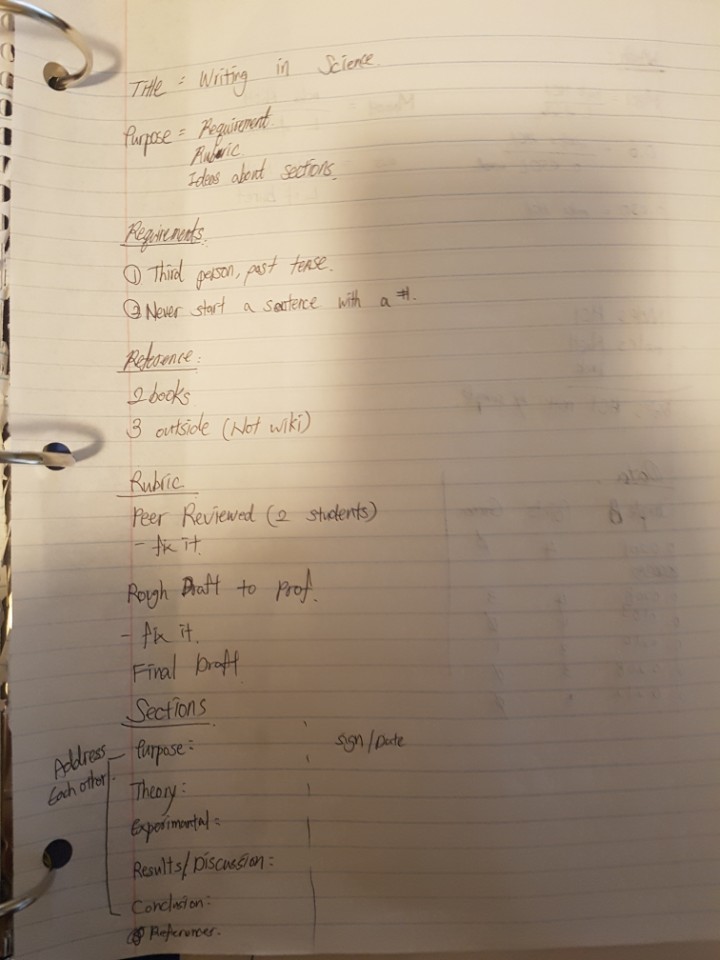 Title = Writing in Science
Purpose = Requirement
Rubric
Ideas about sections
Requirements
① Third person, past tense.
② Never start a sentence with a #.
Reference:
2 books
3 outside (Not wiki)
Rubric
Peer Reviewed (2 students)
- fix it
Rough Draft to prof.
- fix it.
Final Draft
Sections
Address Each other
Purpose:
Sign/Date
Theory:
Experimental:
Results/Discussion:
Conclusion:
References.